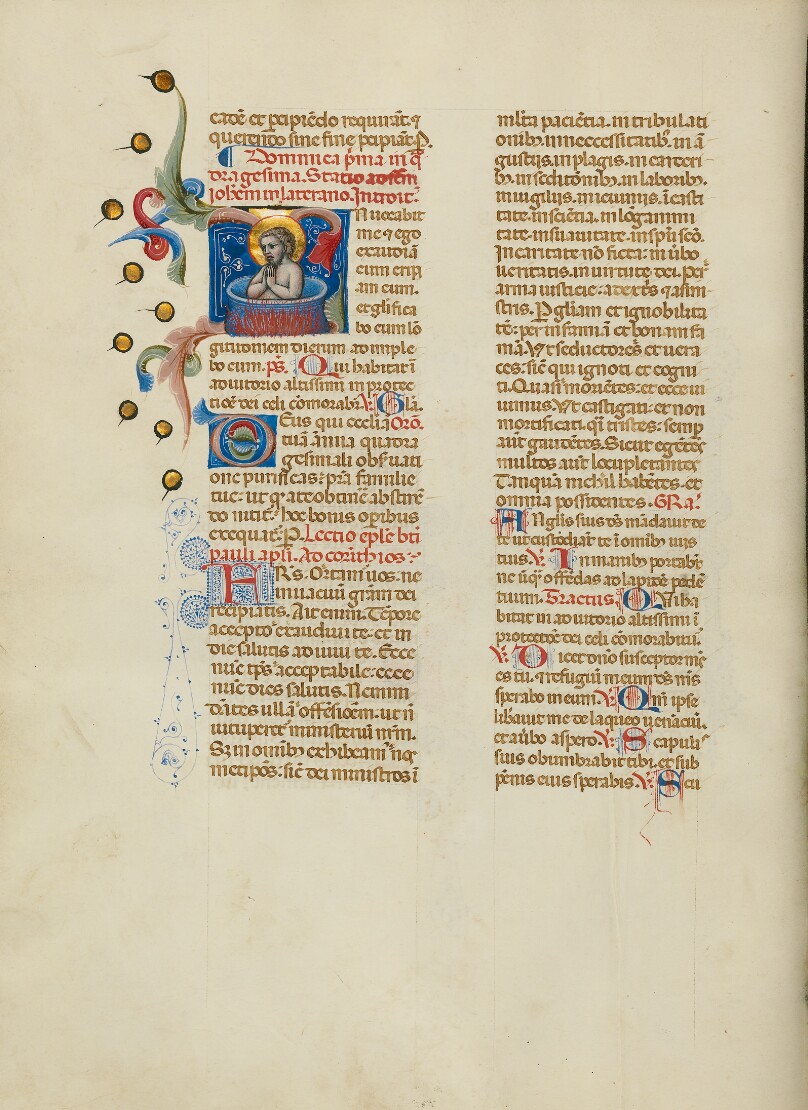 eadē et p̲cipiēdo requirāt. ⁊
querendo sine fine p̲cipiāt. P̲.
Dominica p̄ma in q̄
dragesima. Statio ad scm̄
ioħem in laterano. Introit.
Inuocabit
me ⁊ ego
exaudiā
eum erip
iam eum.
et glīfica
bo eum lō
gitudinem dierum adimple
bo eum. p̄s. Qui habitat ī
adiutorio altissimi in protec
tiōe dei celi cōmorabr̄. V̄. Glā.
Deus qui ecclīā Orō.
tuā ānua quadra
gesimali obs̄uati
one purificas: p̄sta familie
tue: ut q̄ a te obtinē abstinē
do nitit̄: hoc bonis op̲ibus
exequat̄. P̲. Lectio ep̄le bt̄i
pauli apl̄i. Ad corinthios.
FRS. Ortam̄ uos. ne
in uacuū grām dei
recipiatis. Ait enim. Tēpore
accepto exaudiui te. et in
die salutis adiuui te. Ecce
nūc tp̄s acceptabile: ecce
nūc dies salutis. Nemini
dātes ullā offēsiōem. ut nō
uitup̲et̄ ministeriū nr̄m.
Sꝫ in omībꝫ exhibeam̄ nos
metip̄os: sic̄ dei ministros ī
mlt̄a paciētia. in tribulati
onibꝫ. in necessitatibꝫ. in ā
gustijs. in plagis. in carceri
bꝫ. in seditōnibꝫ. in laboribꝫ.
in uigilijs. in ieiunijs. ī casti
tate. in sciētia. in lōganimi
tate. in suauitate. in sp̄u sc̄o.
In caritate nō ficta: in ūbo
ueritatis. in uirtute dei. Per
arma iusticie: a dextris ⁊ a sini
stris. P̲ gliam et ignobilita
tē: per infamiā et bonam fa
mā. Vt seductores et uera
ces: sic̄ qui ignoti et cogni
ti. Quasi moriētes: et ecce ui
uimus. Vt castigati: et non
mortificati. q̄i tristes: semp̲
aūt gaudētes. Sicut egētes:
multos aūt locupletantes.
Tanquā nichil habētes. et
omnia possidentes. GRa.
Anglis suis dꝰ mādauit de
te ut custodiāt te ī omībꝫ uijs
tuis. V̄. In manibꝫ portabt̄
ne ūq̄ offēdas ad lapidē pedē
tuum. Tractus. Qui ha
bitat in adiutorio altissimi ī
protectōe dei celi cōmorabit̄.
V̄. Dicet dn̄o susceptor mꝰ
es tu. ⁊ refugiū meum dꝰ mꝰ
sperabo in eum. V̄. Qm̄ ipse
lib̄auit me de laqueo uenātiū.
et a ūbo aspero. V̄. Scapulis
suis obumbrabit tibi. et sub
pēnis eius sperabis. V̄. Scu